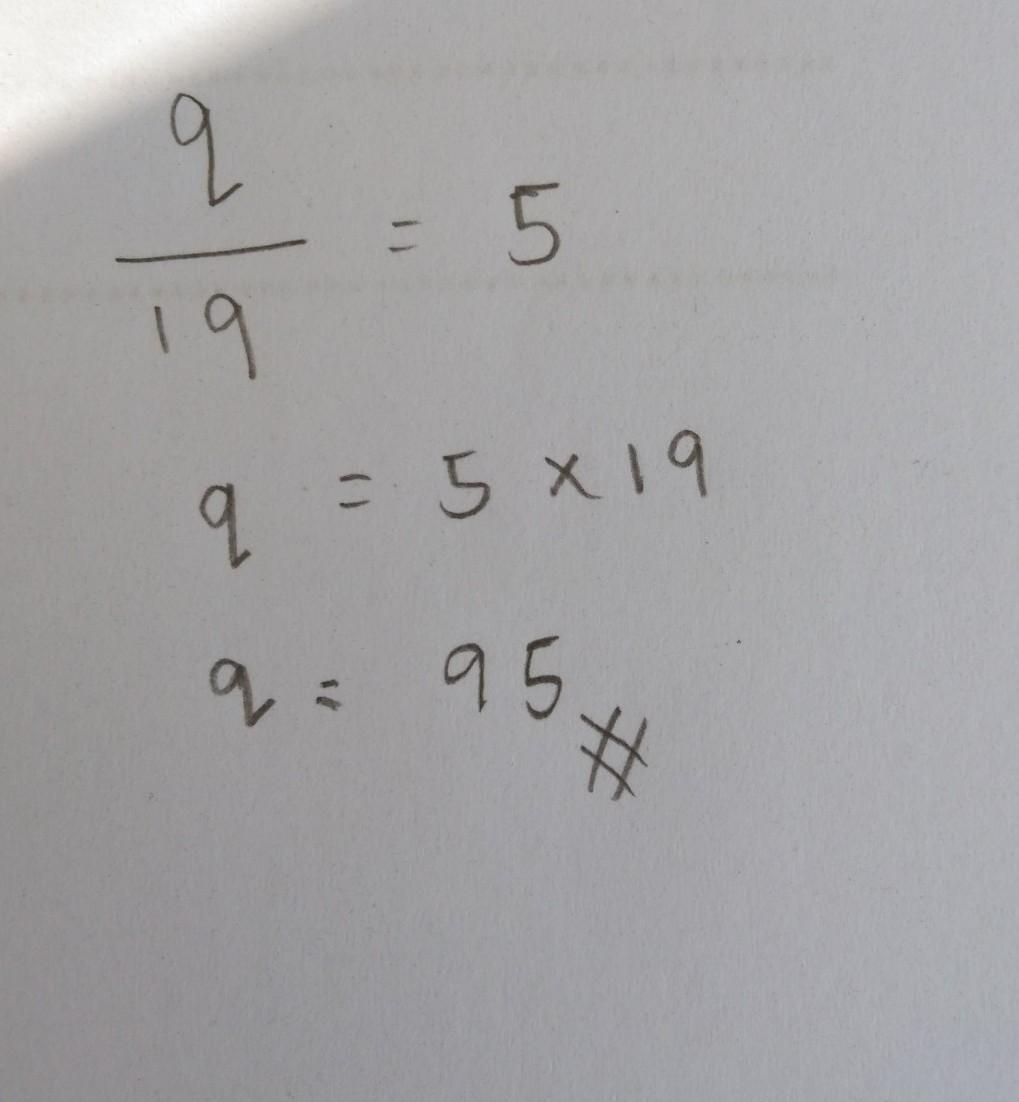 q
19 = 5
q = 5 × 19
q = 95 #